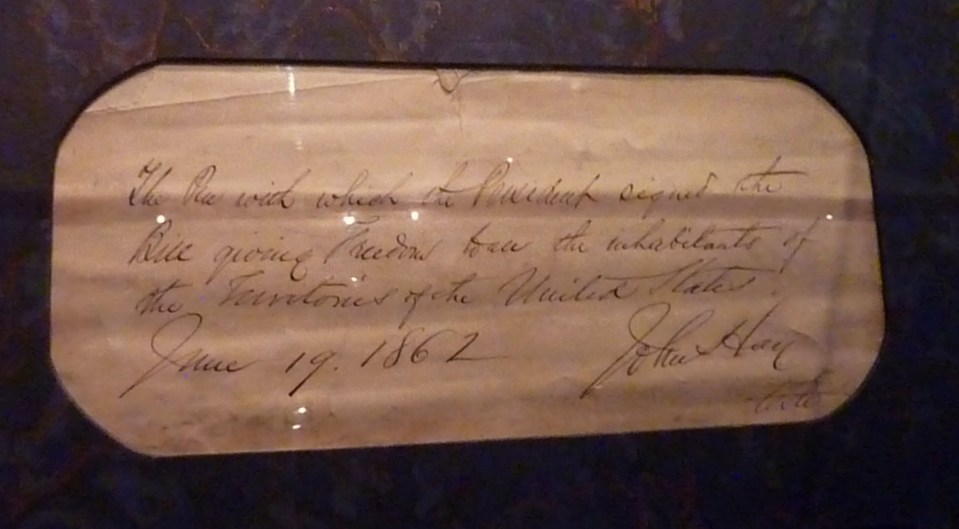 The Pen with which the President signed the
Bill giving Freedom to all the inhabitants of
the Territories of the United States.
June 19. 1862 John Hay